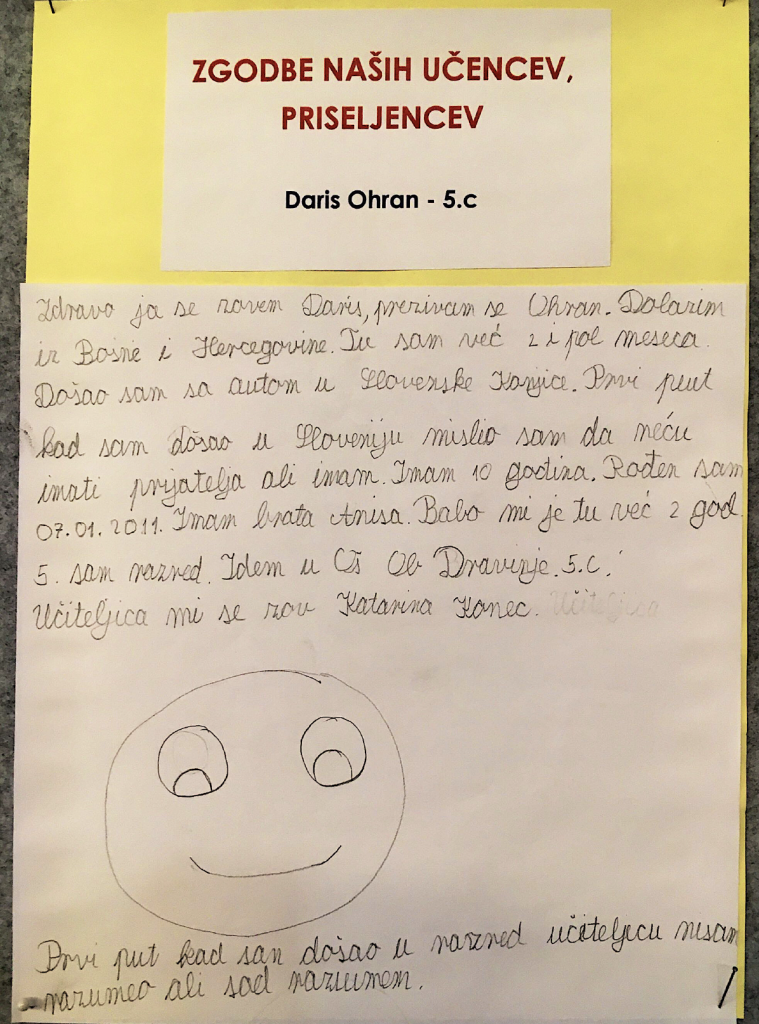 ZGODBE NAŠIH UČENCEV,
PRISELJENCEV
Daris Ohran - 5.c
Zdravo ja se zovem Daris, prezivam se Ohran. Dolazim
iz Bosne i Hercegovine. Tu sam već 2 i pol meseca.
Došao sam sa autom u Slovenske Konjice. Prvi puut
kad sam došao u Sloveniju mislio sam da neću
imati prijatelja ali imam. Imam 10 godina. Rođen sam
07.01.2011. Imam brata Anisa. Babo mi je tu već 2 god.
5. sam razred. Idem u OŠ Ob Dravinje. 5.C.
Učiteljica mi se zov Katarina Konec. Učiteljica
Prvi put kad san došao u razred učiteljicu nisam
razumeo ali sad razuumem.